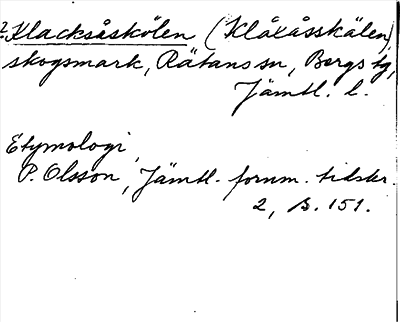 ? Klacksåskölen (Klåxåsskälen),
skogsmark, Rätans sn, Bergs tg,
Jämtl. l.
Etymologi
P. Olsson, Jämtl. fornm. tidskr.
2, s. 151.